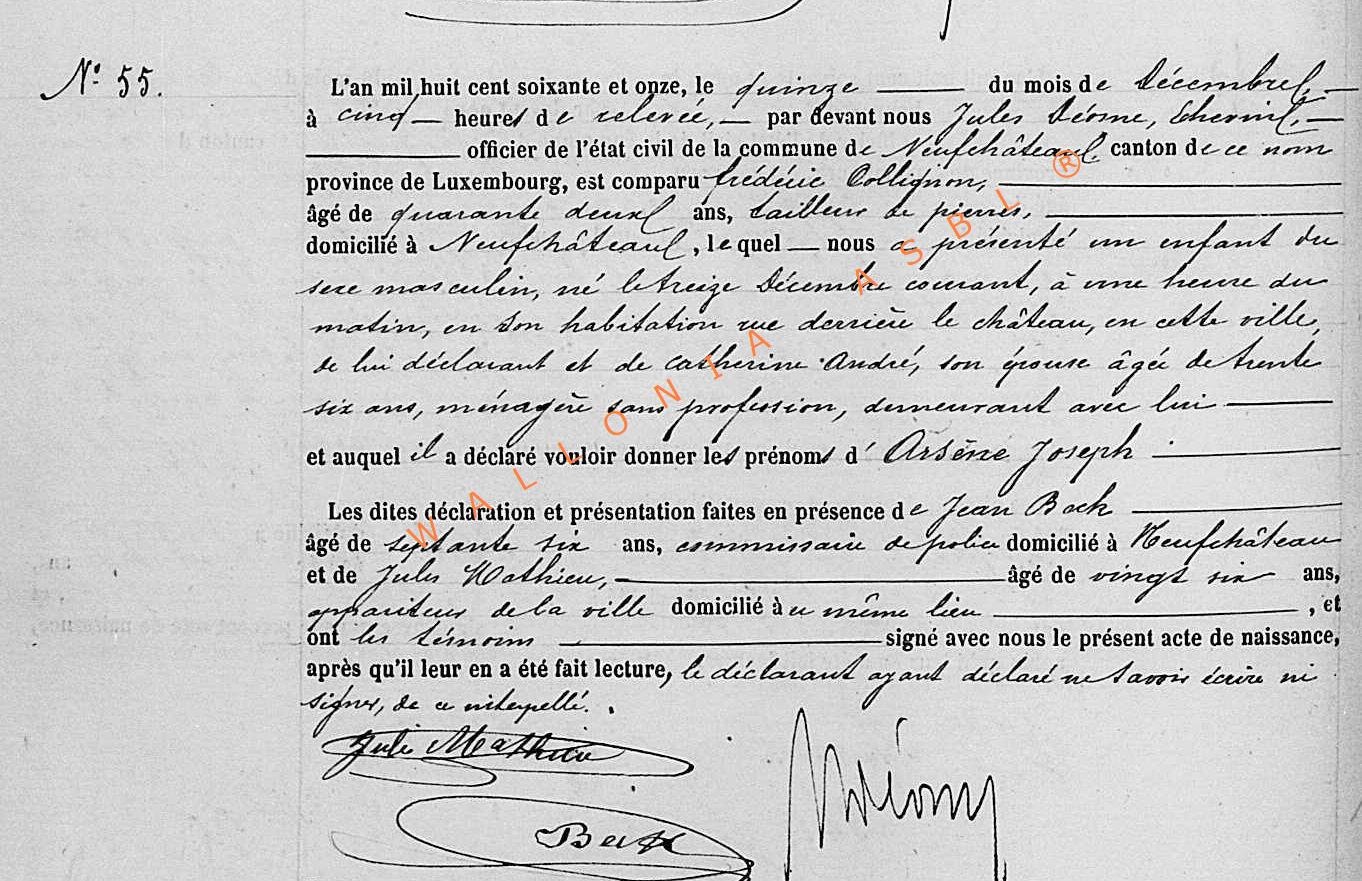 N° 55.
L'an mil huit cent soixante et onze, le quinze du mois de Décembre,
à cinq heures de relevée, par devant nous Jules Déome, Echevin,
officier de l'état civil de la commune de Neufchâteau, canton de ce nom
province de Luxembourg, est comparu frédéric Collignon,
âgé de quarante deux ans, tailleur de pierres,
domicilié à Neufchâteau, lequel nous a présenté un enfant du
sexe masculin, né le treize Décembre courant, à une heure du
matin, en son habitation rue derrière le château, en cette ville,
de lui déclarant et de Catherine André, son épouse âgée de trente
six ans, ménagère sans profession, demeurant avec lui
et auquel il a déclaré vouloir donner les prénoms d'Arsène Joseph
Les dites déclaration et présentation faites en présence de Jean Beck
âgé de septante six ans, commissaire de police domicilié à Neufchâteau
et de Jules Mathieu, âgé de vingt six ans,
appariteur de la ville domicilié à ce même lieu, et
ont les témoins signé avec nous le présent acte de naissance,
après qu'il leur en a été fait lecture, le déclarant ayant déclaré ne savoir écrire ni
signer, de ce interpellé.
Jules Mathieu
Beck
WALLONIA ASBL ®